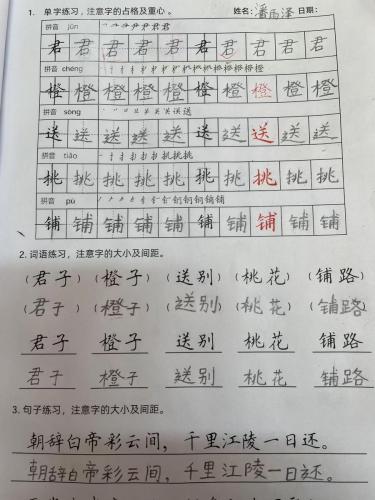 1. 单字练习，注意字的占格及重心。 姓名：潘雨泽 日期：
拼音 jūn
君君君君君君君君君君
拼音 chéng
橙橙橙橙橙橙橙橙橙橙
拼音 sòng
送送送送送送送送送送
拼音 tiāo
挑挑挑挑挑挑挑挑挑挑
拼音 pù
铺铺铺铺铺铺铺铺铺铺
2. 词语练习，注意字的大小及间距。
（君子）（橙子）（送别）（桃花）（铺路）
（君子）（橙子）（送别）（桃花）（铺路）
君子 橙子 送别 桃花 铺路
君子 橙子 送别 桃花 铺路
3. 句子练习，注意字的大小及间距。
朝辞白帝彩云间，千里江陵一日还。
朝辞白帝彩云间，千里江陵一日还。